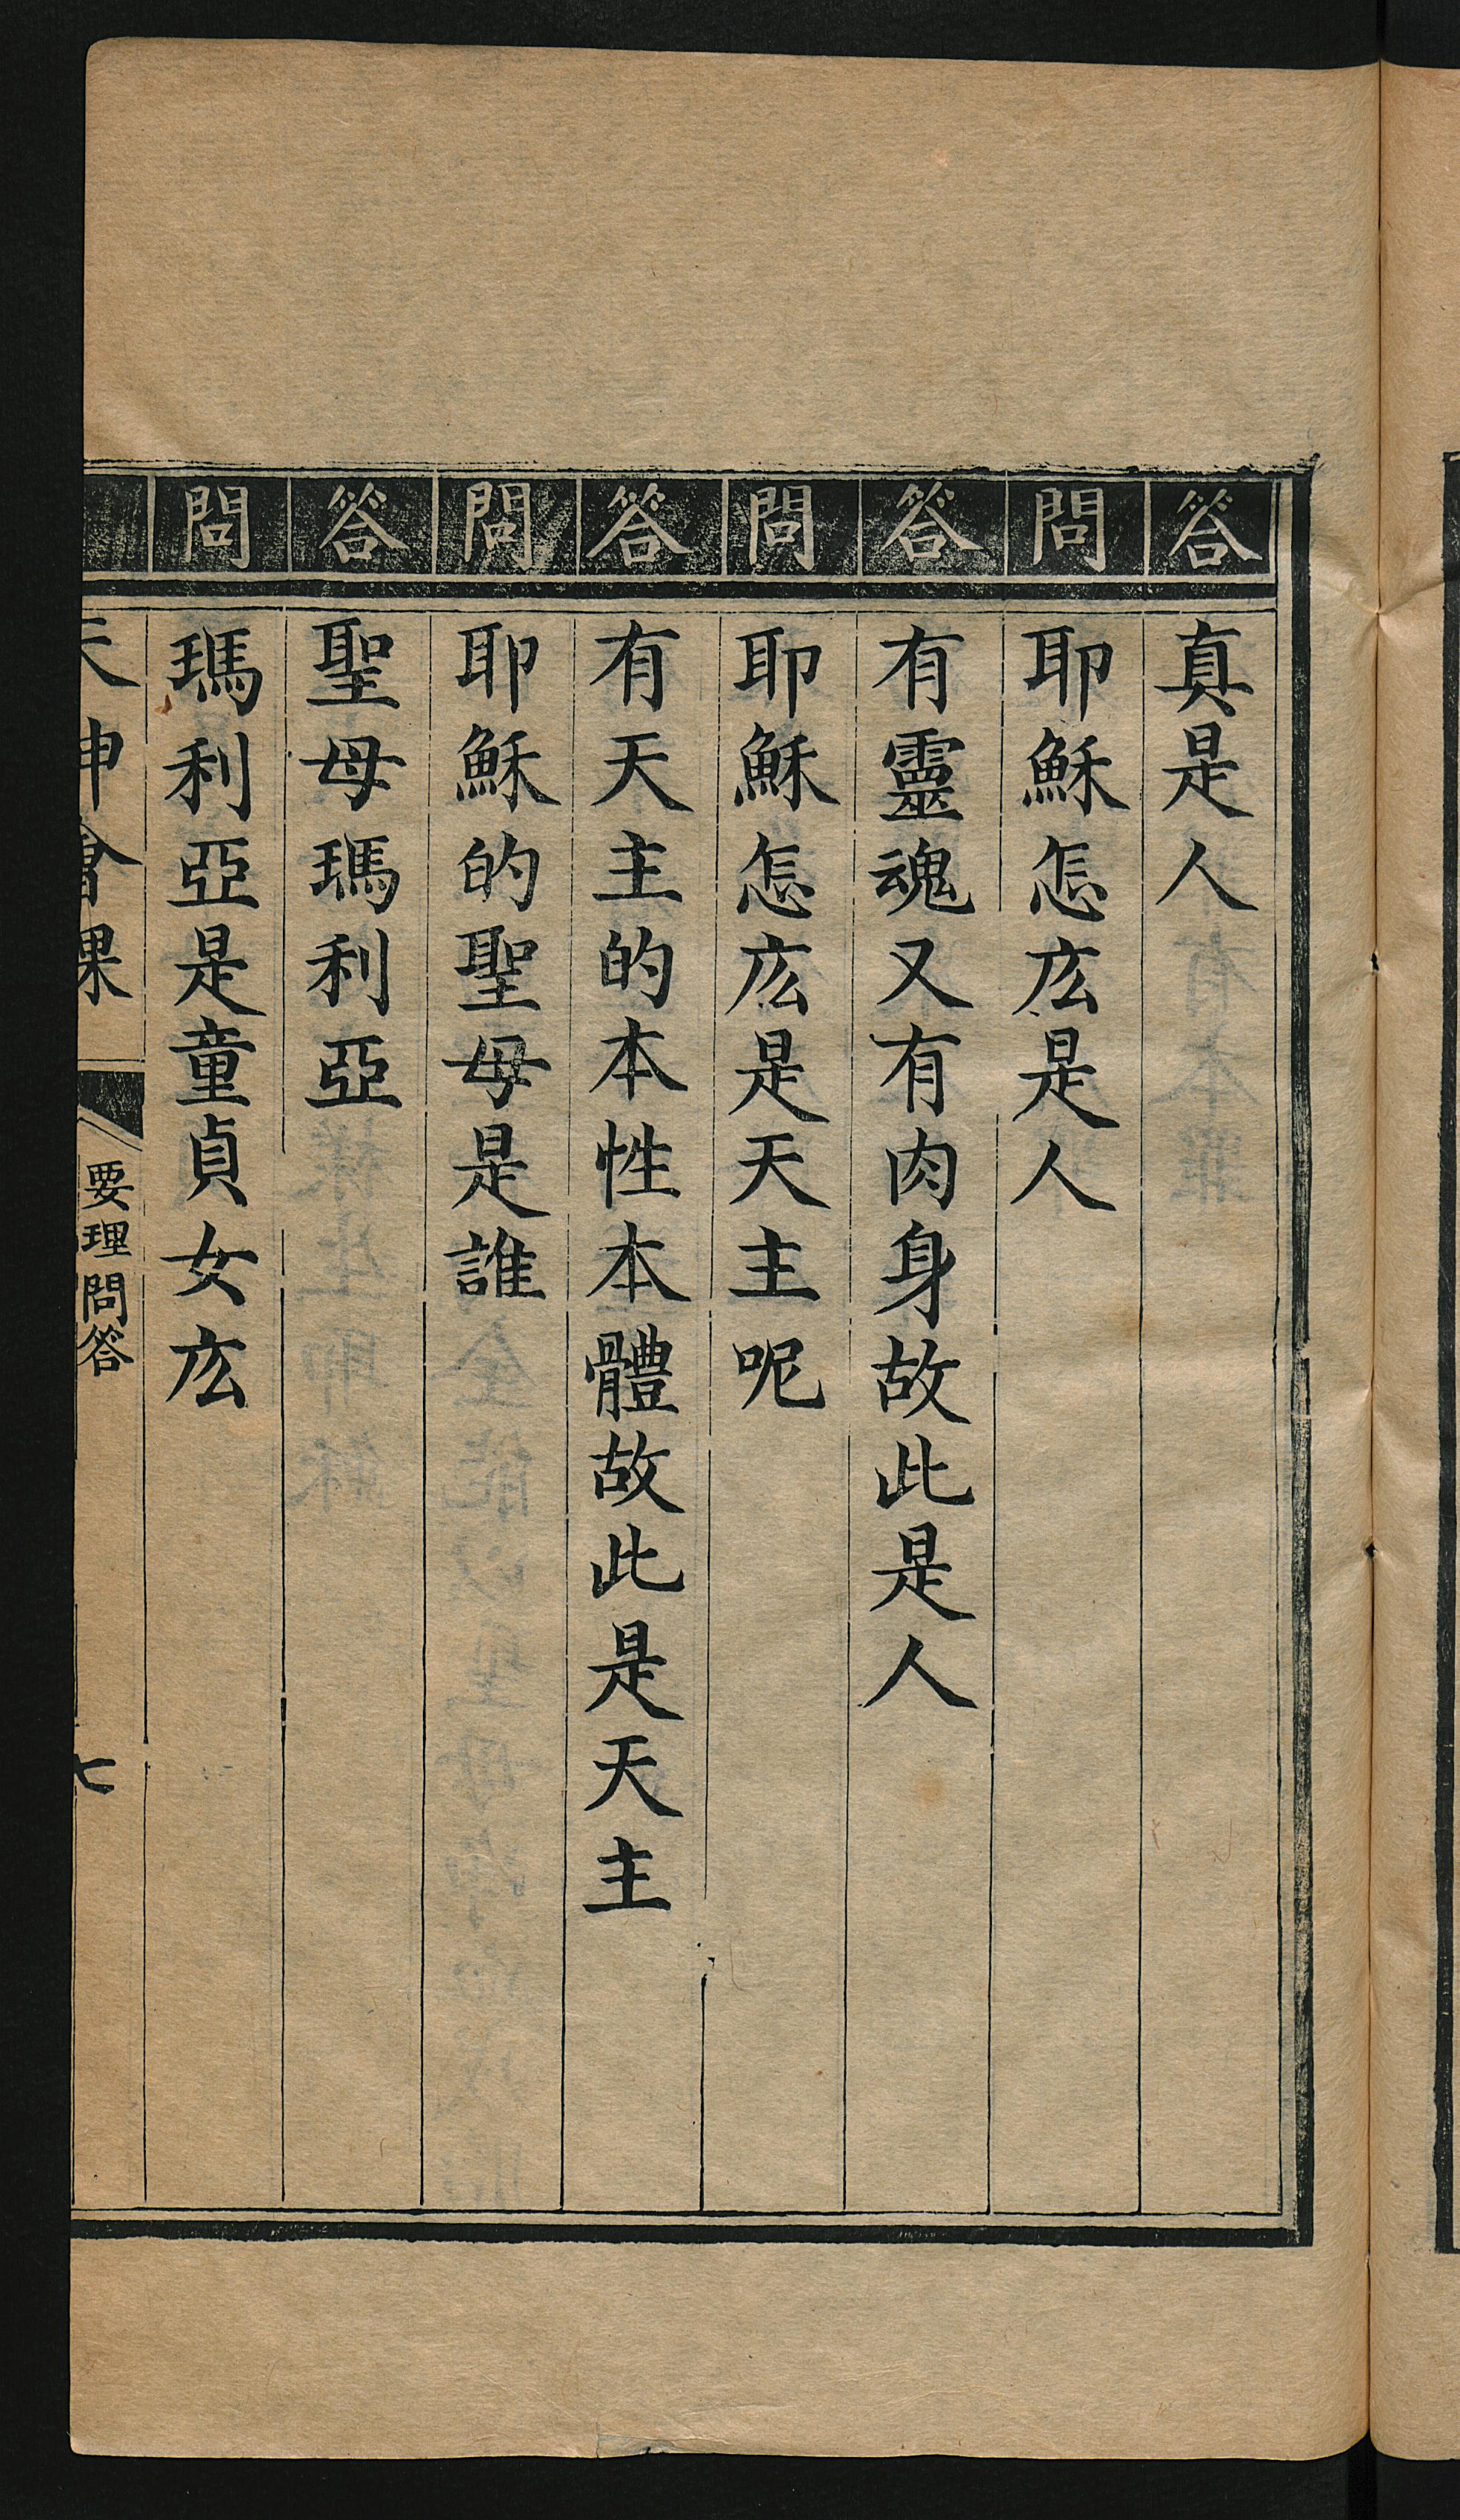 答 真是人
問 耶穌怎庅是人
答 有靈魂又有肉身故此是人
問 耶穌怎庅是天主呢
答 有天主的本性本體故此是天主
問 耶穌的聖母是誰
答 聖母瑪利亞
問 瑪利亞是童貞女庅
天神會課 要理問答 七